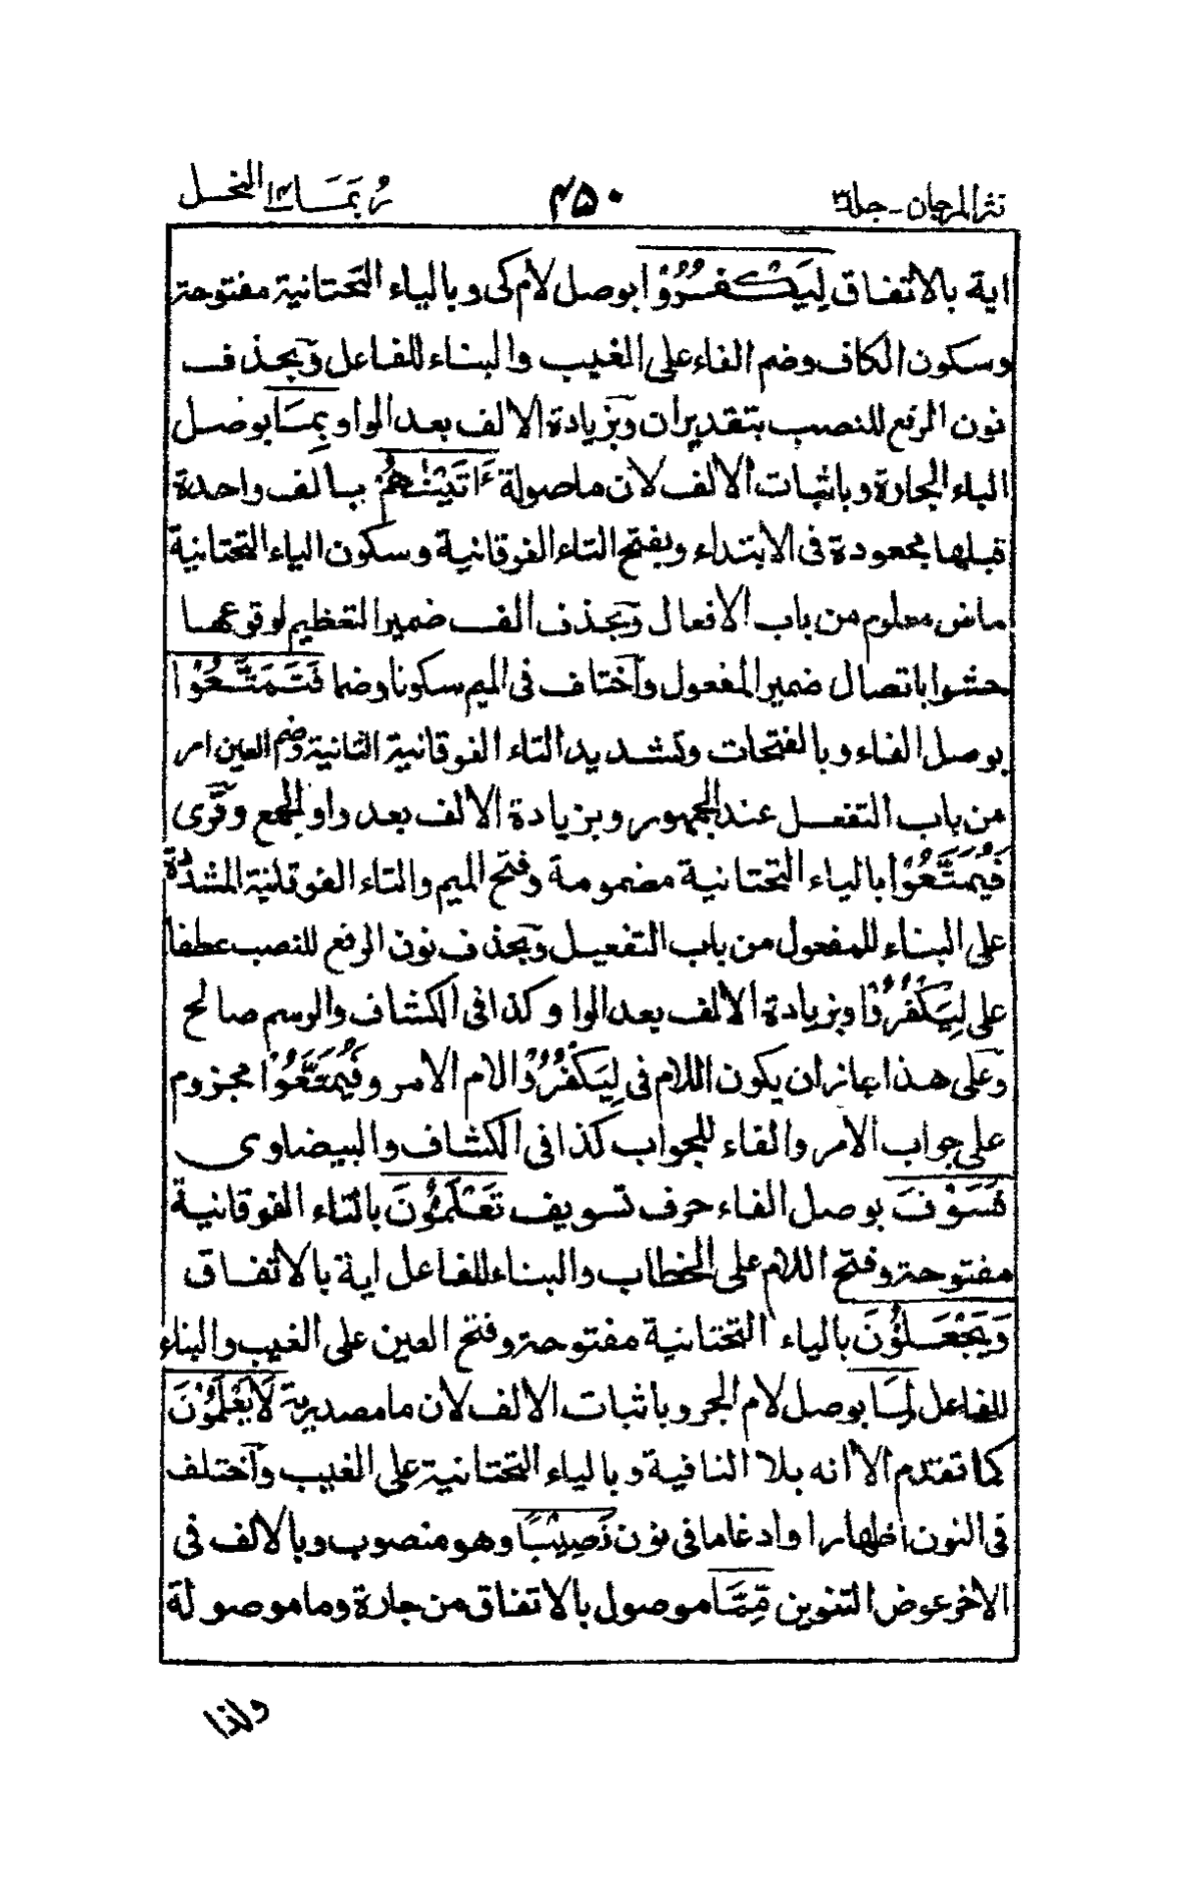 نثر المرجان - جلد ٣
٤٥٠
رُبَمَا ١٤ النحل
اية بالاتفاق لِيَكْفُرُوْا بوصل لام كى وبالياء التحتانية مفتوحة
وسكون الكاف وضم الفاء على الغيب والبناء للفاعل وبحذف
نون الرفع للنصب بتقديران وبزيادة الالف بعد الواو بِمَا بوصل
الباء الجارة وباثبات الالف لان ماصولة ءَاتَيْنٰهُمْ بالف واحدة
قبلها مجعودة فى الابتداء وبفتح التاء الفوقانية وسكون الياء التحتانية
ماض معلوم من باب الافعال وبحذف الف ضمير التعظيم لوقوعها
حشوا باتصال ضمير المفعول واختلف فى الميم سكونا وضما فَتَمَتَّعُوْا
بوصل الفاء وبالفتحات وتشديد التاء الفوقانية الثانية وضم العين امر
من باب التفعل عند الجمهور وبزيادة الالف بعد واو الجمع وقرى
فَيُمَتَّعُوْا بالياء التحتانية مضمومة وفتح الميم والتاء الفوقانية المشددة
على البناء للمفعول من باب التفعيل وبحذف نون الرفع للنصب عطفا
على لِيَكْفُرُوْا وبزيادة الالف بعد الواو كذا فى الكشاف والرسم صالح
وعلى هذا جاز ان يكون اللام فى لِيَكْفُرُوْا لام الامر وفَيُمَتَّعُوْا مجزوم
على جواب الامر والفاء للجواب كذا فى الكشاف والبيضاوى
فَسَوْفَ بوصل الفاء حرف تسويف تَعْلَمُوْنَ بالتاء الفوقانية
مفتوحة وفتح اللام على الخطاب والبناء للفاعل اية بالاتفاق
وَيَجْعَلُوْنَ بالياء التحتانية مفتوحة وفتح العين على الغيب والبناء
للفاعل لِمَا بوصل لام الجر وباثبات الالف لان ما مصدرية لَايَعْلَمُوْنَ
كما تقدم الا انه بلا النافية وبالياء التحتانية على الغيب واختلف
فى النون اظهارا وادغاما فى نون نَصِيْبًا وهو منصوب وبالالف فى
الاخر عوض التنوين مِّمَّا موصول بالاتفاق من جارة وما موصولة
ولذا